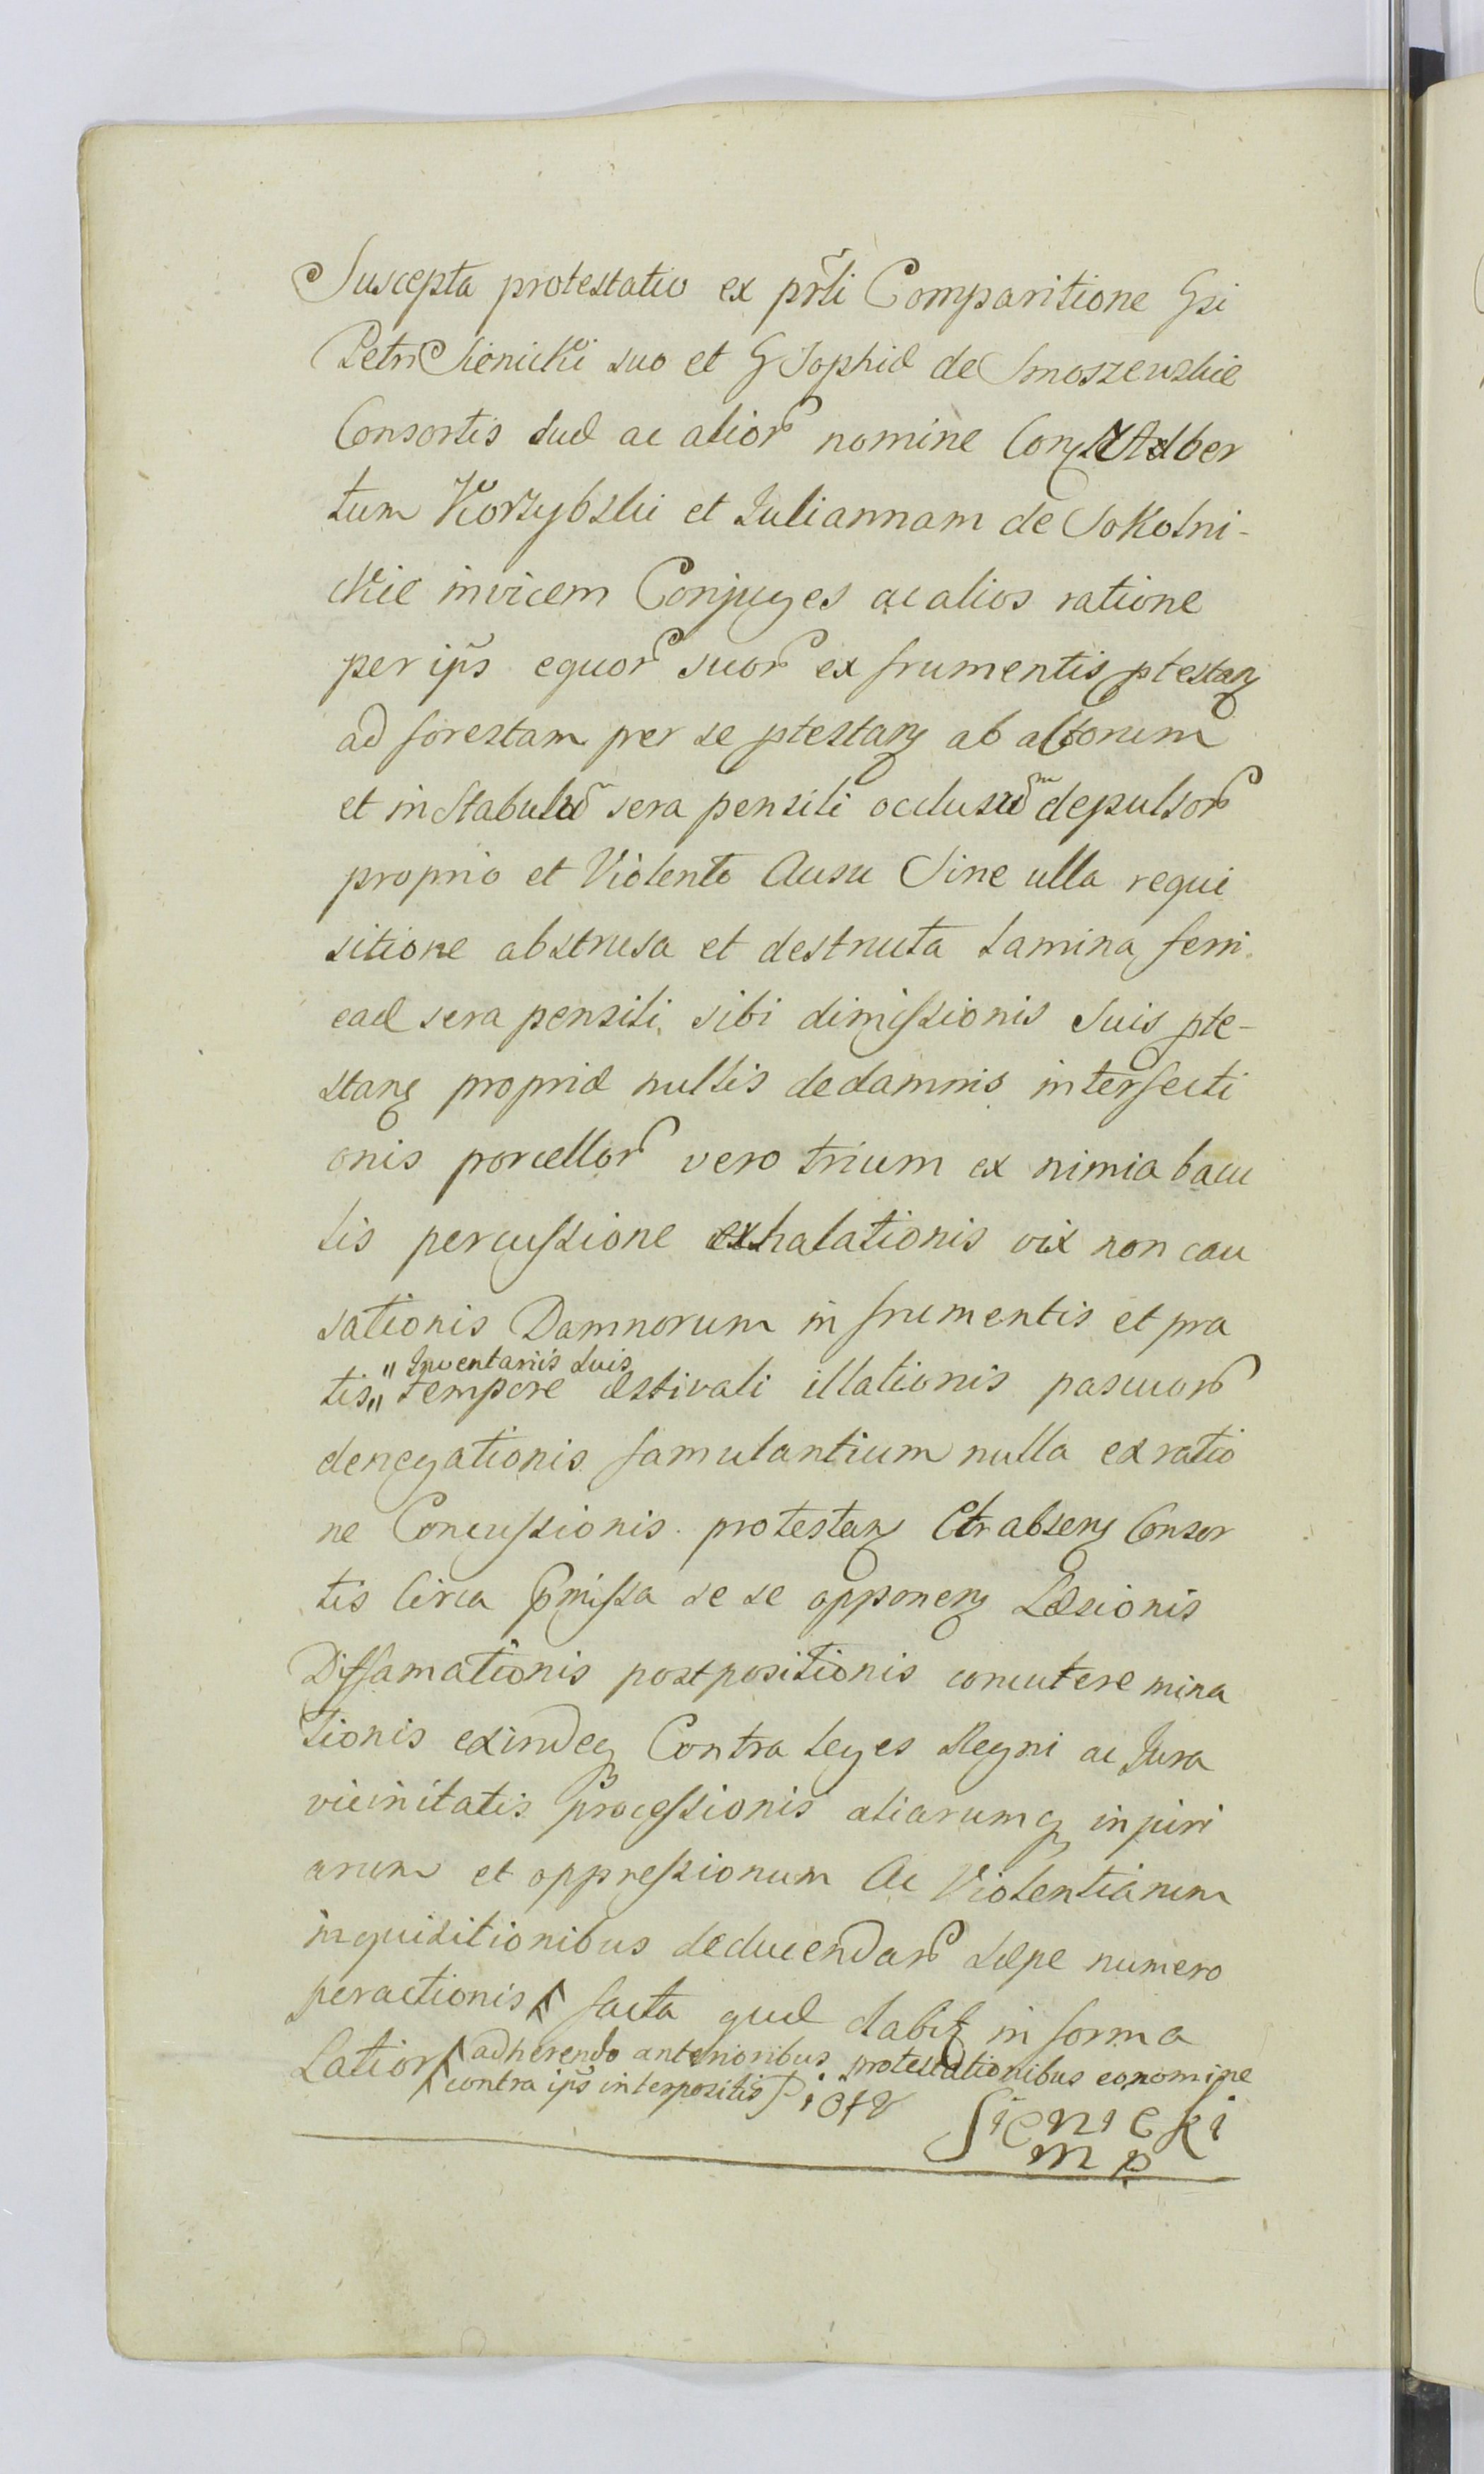 Suscepta protestatio ex prti Comparitione Gsi
Petri Sienicki suo et G Sophiæ de Smoszewskie
Consortis suæ ac alior nomine Con Adalber
tum Korzybski et Juliannam de Sokolni-
ckie invicem Conjuges ac alios ratione
per ips equor suor ex frumentis ptestan
ad forestam per se ptestan ab actorum
et in Stabulum sera pensili occlusum depulsor
proprio et Violento Ausu Sine ulla requi
sitione abstrusa et destructa lamina ferri
eaq sera pensili sibi dimissionis Suis pte-
stan propriæ nullis de damnis interfecti
onis porcellor vero trium ex nimia bacu
lis percussione exhalationis vix non cau
sationis Damnorum in frumentis et pra
tis " Inventariis Suis " tempore æstivali illationis pascuor
denegationis famulantium nulla ex ratio
ne Concussionis protestan Ctr absen Consor
tis Circa pmissa se se opponen Læsionis
Diffamationis postpositionis concutere mina
tionis exindeq Contra leges Regni ac Jura
vicinitatis processionis aliarumq injuri
arum et oppressionum Ac Violentiarum
inquisitionibus deducendar sæpe numero
peractionis facta quæ dabit in forma
Latior adhærendo anterioribus protestationibus eo nomine
contra ips interpositis Piotr Sienicki
mp